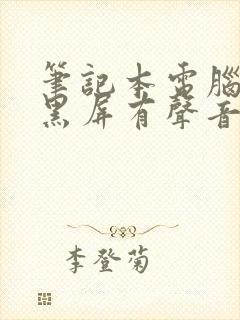 筆記本電腦
黑屏有聲音
李登菊